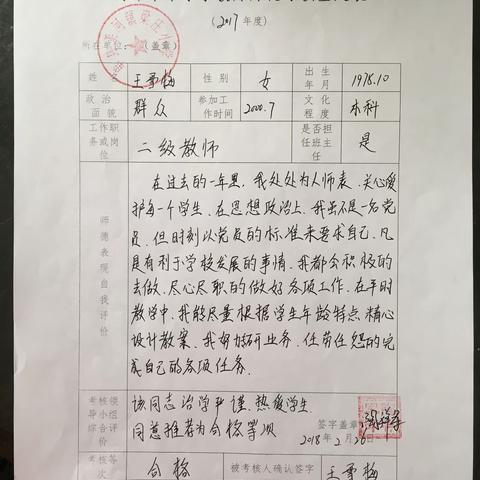 （2017年度）
所在单位：（盖章）
姓名 王雪梅 性别 女 出生年月 1978.10
政治面貌 群众 参加工作时间 2000.7 文化程度 本科
工作职务或岗位 二级教师 是否担任班主任 是
师德表现自我评价
在过去的一年里，我处处为人师表、关心爱
护每一个学生、在思想政治上、我虽不是一名党
员、但时刻以党员的标准来要求自己、凡
是有利于学校发展的事情、我都会积极的
去做、尽心尽职的做好各项工作、在平时
教学中、我能尽量根据学生年龄特点精心
设计教案、我努力钻研业务、任劳任怨的完
成自己的各项任务.
考核领导小组综合评价
该同志治学严谨、热爱学生
同意推荐为合格等次
签字盖章：
2018年2月26日
考核等次 合格 被考核人确认签字 王雪梅